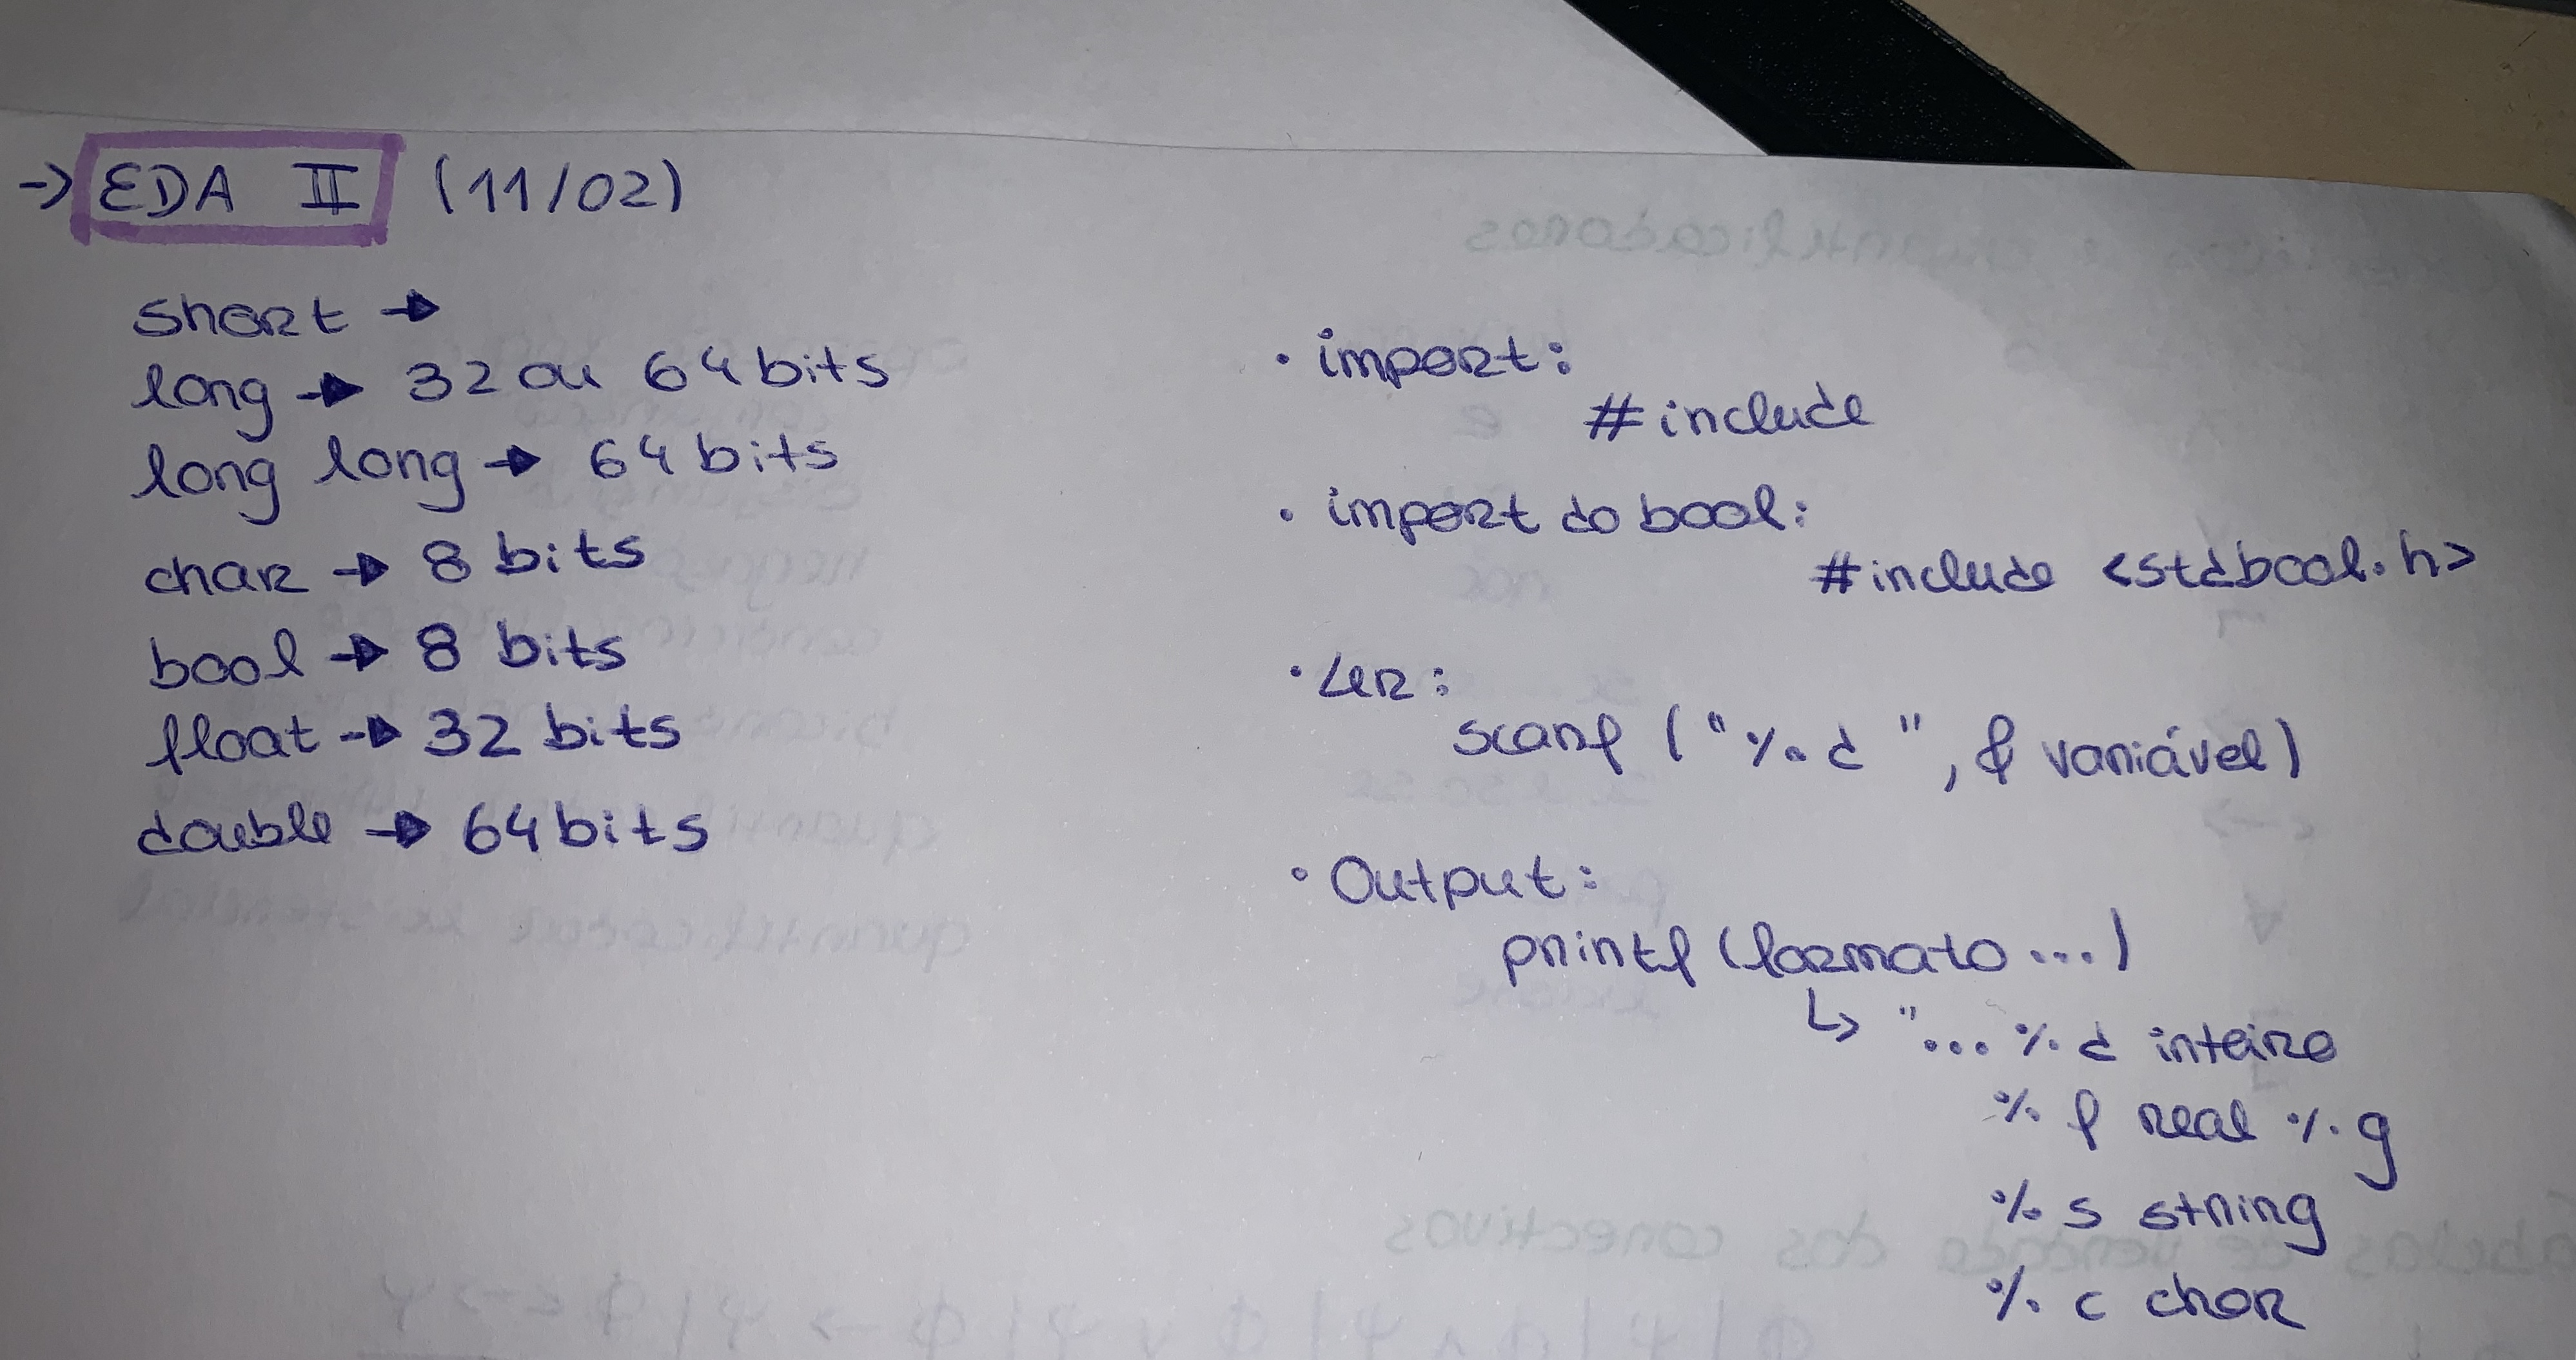 → EDA II (11/02)
short →
long → 32 ou 64 bits
long long → 64 bits
char → 8 bits
bool → 8 bits
float → 32 bits
double → 64 bits
• import:
#include
• import do bool:
#include <stdbool.h>
• Ler:
scanf ("%d", & variável)
• Output:
printf (formato ...)
↳ "... %d inteiro
%f real %g
%s string
%c char